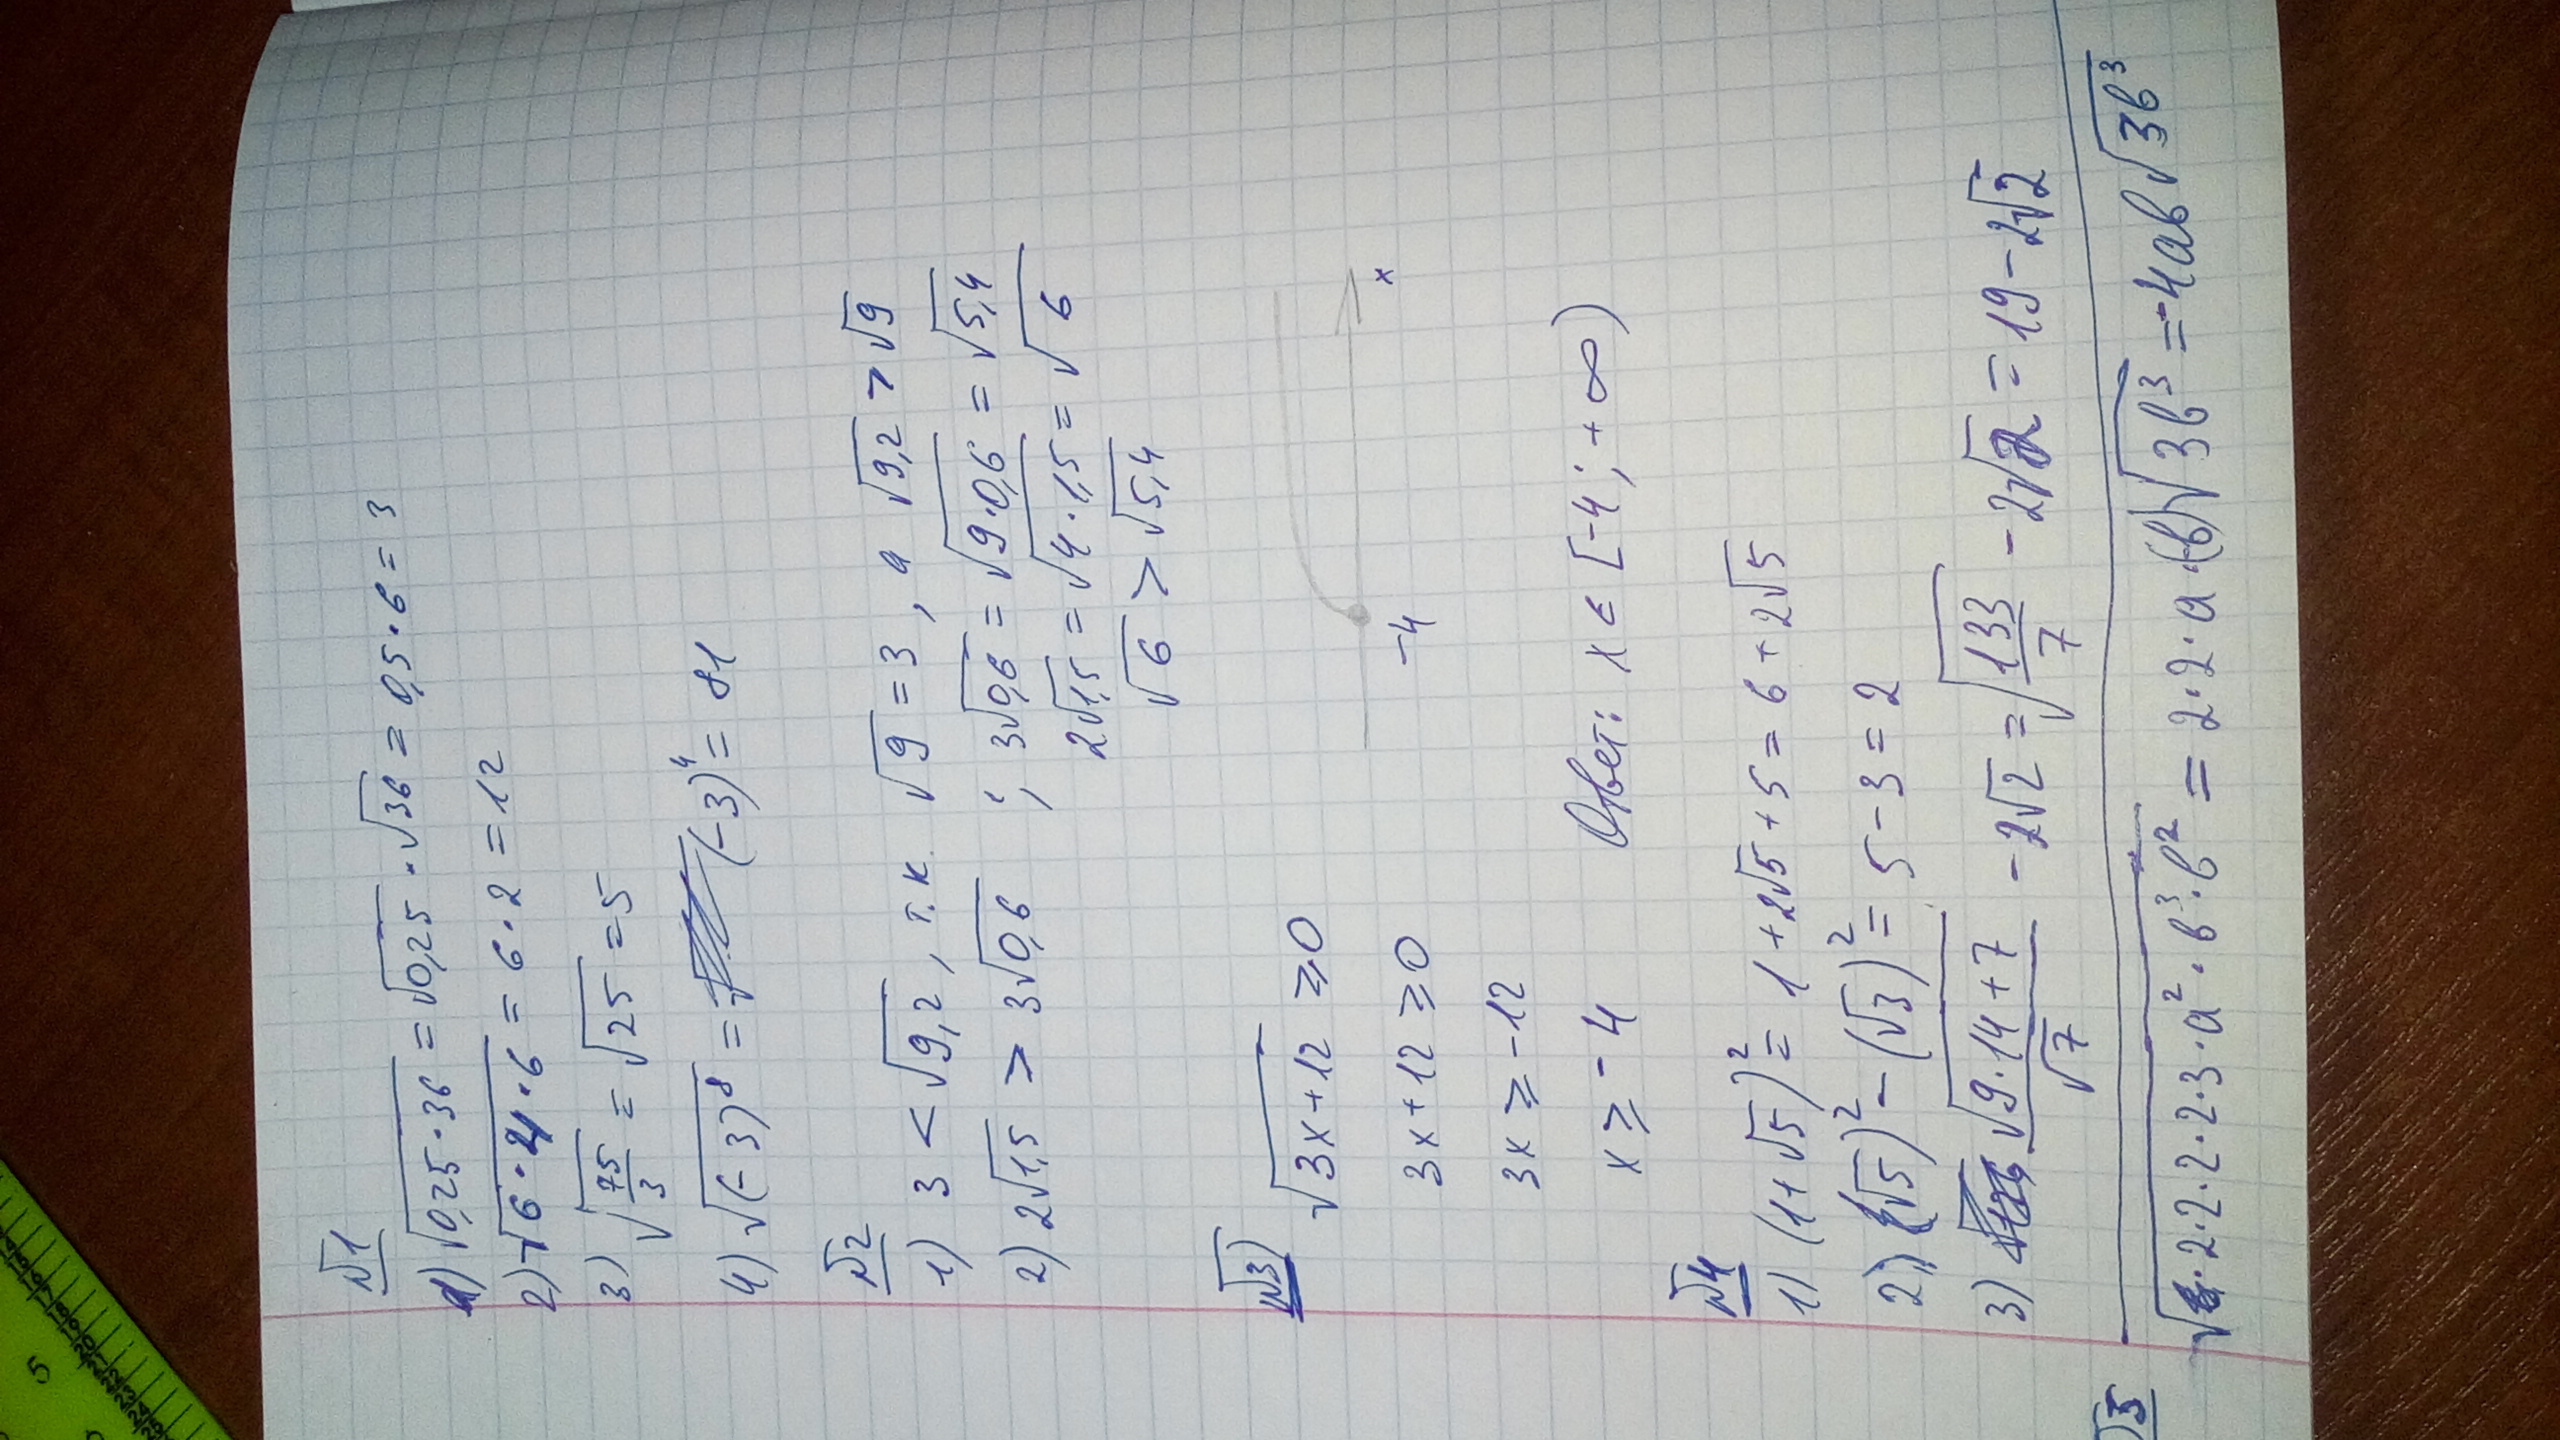 №1
1) √0,25·36 = √0,25 · √36 = 0,5·6 = 3
2) √6·24·6 = 6·2 = 12
3) √75/3 = √25 = 5
4) √(-3)⁸ = (-3)⁴ = 81
№2
1) 3 < √9,2, т.к. √9 = 3, а √9,2 > √9
2) 2√1,5 > 3√0,6 ; 3√0,6 = √9·0,6 = √5,4
2√1,5 = √4·1,5 = √6
√6 > √5,4
№3)
√3x+12 ⩾0
3x+12 ⩾0
-4 x
3x ⩾ -12
x ⩾ -4 Ответ: x ∈ [-4; +∞)
№4
1) (1+√5)² = 1+2√5+5 = 6+2√5
2) (√5)² - (√3)² = 5-3 = 2
3) √9·14+7 / √7 - 2√2 = √133/7 - 2√2 = 19 - 2√2
№5
√2·2·2·2·3·a²·b³·b² = 2·2·a·(b)√3b³ = -4ab√3b³